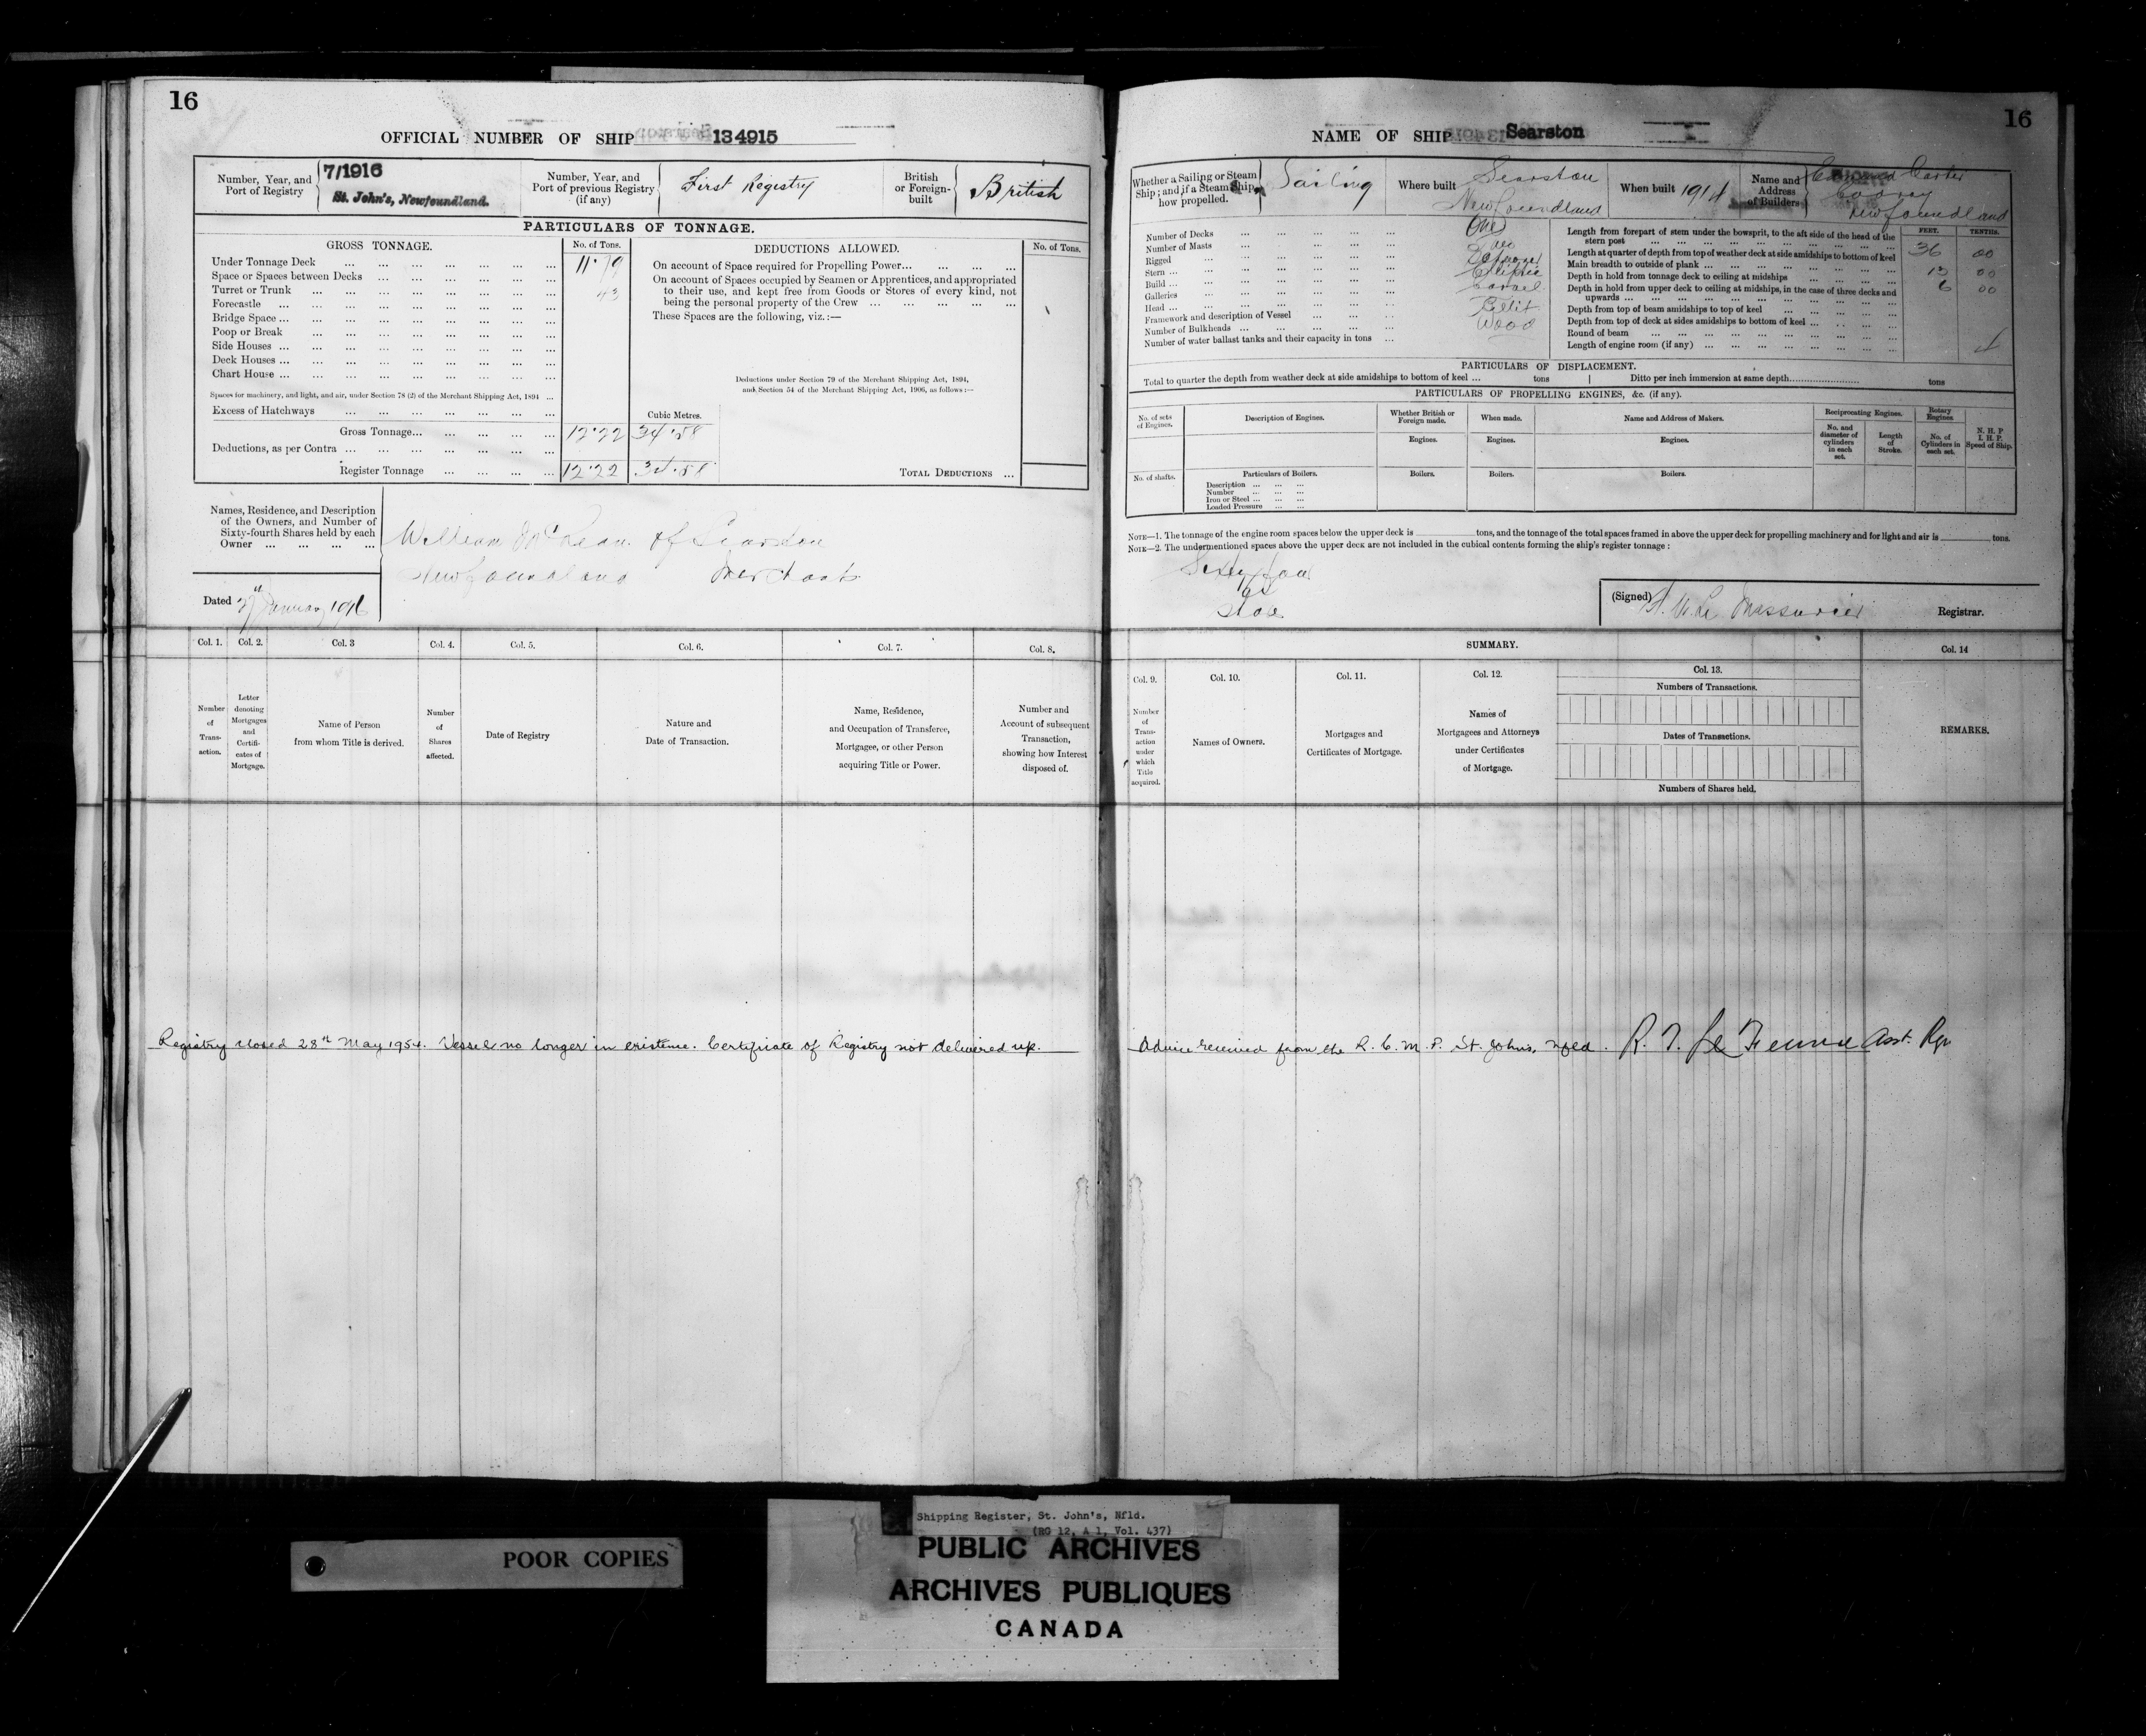 16
OFFICIAL NUMBER OF SHIP 134915
Number, Year, and
Port of Registry
7/1916
St. John's, Newfoundland.
Number, Year, and
Port of previous Registry
(if any)
First Registry
British
or Foreign-
built
British
PARTICULARS OF TONNAGE.
GROSS TONNAGE.
No. of Tons.
Under Tonnage Deck ... 11.79
Space or Spaces between Decks ...
Turret or Trunk ... 43
Forecastle ...
Bridge Space ...
Poop or Break ...
Side Houses ...
Deck Houses ...
Chart House ...
Spaces for machinery, and light, and air, under Section 78 (2) of the Merchant Shipping Act, 1894 ...
Excess of Hatchways ...
Cubic Metres.
Gross Tonnage... 12.22 34.58
Deductions, as per Contra ...
Register Tonnage ... 12.22 34.58
DEDUCTIONS ALLOWED.
No. of Tons.
On account of Space required for Propelling Power...
On account of Spaces occupied by Seamen or Apprentices, and appropriated
to their use, and kept free from Goods or Stores of every kind, not
being the personal property of the Crew ...
These Spaces are the following, viz.:—
Deductions under Section 79 of the Merchant Shipping Act, 1894,
and Section 54 of the Merchant Shipping Act, 1906, as follows:—
TOTAL DEDUCTIONS ...
Names, Residence, and Description
of the Owners, and Number of
Sixty-fourth Shares held by each
Owner ...
William of Searston
Newfoundland Merchant
Dated January 1916
Col. 1. Col. 2. Col. 3 Col. 4. Col. 5. Col. 6. Col. 7. Col. 8.
Number
of
Trans-
action.
Letter
denoting
Mortgages
and
Certifi-
cates of
Mortgage.
Name of Person
from whom Title is derived.
Number
of
Shares
affected.
Date of Registry
Nature and
Date of Transaction.
Name, Residence,
and Occupation of Transferee,
Mortgagee, or other Person
acquiring Title or Power.
Number and
Account of subsequent
Transaction,
showing how Interest
disposed of.
Registry closed 28th May 1954. Vessel no longer in existence. Certificate of Registry not delivered up.
16
NAME OF SHIP Searston
Whether a Sailing or Steam
Ship; and if a Steam Ship,
how propelled.
Sailing
Where built
Searston
Newfoundland
When built 1914
Name and
Address
of Builders
Carter
Codroy
Newfoundland
Number of Decks ... One
Number of Masts ... Two
Rigged ... Schooner
Stern ... Elliptic
Build ... Carvel
Galleries ...
Head ... Billet
Framework and description of Vessel ... Wood
Number of Bulkheads ...
Number of water ballast tanks and their capacity in tons ...
FEET. TENTHS.
Length from forepart of stem under the bowsprit, to the aft side of the head of the
stern post ... 36 00
Length at quarter of depth from top of weather deck at side amidships to bottom of keel
Main breadth to outside of plank ... 00
Depth in hold from tonnage deck to ceiling at midships ... 6 00
Depth in hold from upper deck to ceiling at midships, in the case of three decks and
upwards ...
Depth from top of beam amidships to top of keel ...
Depth from top of deck at sides amidships to bottom of keel ...
Round of beam ...
Length of engine room (if any) ...
PARTICULARS OF DISPLACEMENT.
Total to quarter the depth from weather deck at side amidships to bottom of keel ... tons Ditto per inch immersion at same depth... tons
PARTICULARS OF PROPELLING ENGINES, &c. (if any).
No. of sets
of Engines.
Description of Engines.
Whether British or
Foreign made.
When made.
Name and Address of Makers.
Reciprocating Engines.
Rotary
Engines
N. H. P
I. H. P.
Speed of Ship.
Engines. Engines. Engines.
No. and
diameter of
cylinders
in each
set.
Length
of
Stroke.
No. of
Cylinders in
each set.
No. of shafts.
Particulars of Boilers.
Boilers. Boilers. Boilers.
Description ...
Number ...
Iron or Steel ...
Loaded Pressure ...
NOTE—1. The tonnage of the engine room spaces below the upper deck is tons, and the tonnage of the total spaces framed in above the upper deck for propelling machinery and for light and air is tons.
NOTE—2. The undermentioned spaces above the upper deck are not included in the cubical contents forming the ship's register tonnage:
Sixty four
(Signed) Registrar.
SUMMARY.
Col. 14
Col. 9. Col. 10. Col. 11. Col. 12. Col. 13.
Number
of
Trans-
action
under
which
Title
acquired.
Names of Owners.
Mortgages and
Certificates of Mortgage.
Names of
Mortgagees and Attorneys
under Certificates
of Mortgage.
Numbers of Transactions.
Dates of Transactions.
Numbers of Shares held.
REMARKS.
Advice received from the R.C.M.P. St. John's, Nfld. Asst. Rgr
POOR COPIES
Shipping Register, St. John's, Nfld.
(RG 12, A 1, Vol. 437)
PUBLIC ARCHIVES
ARCHIVES PUBLIQUES
CANADA